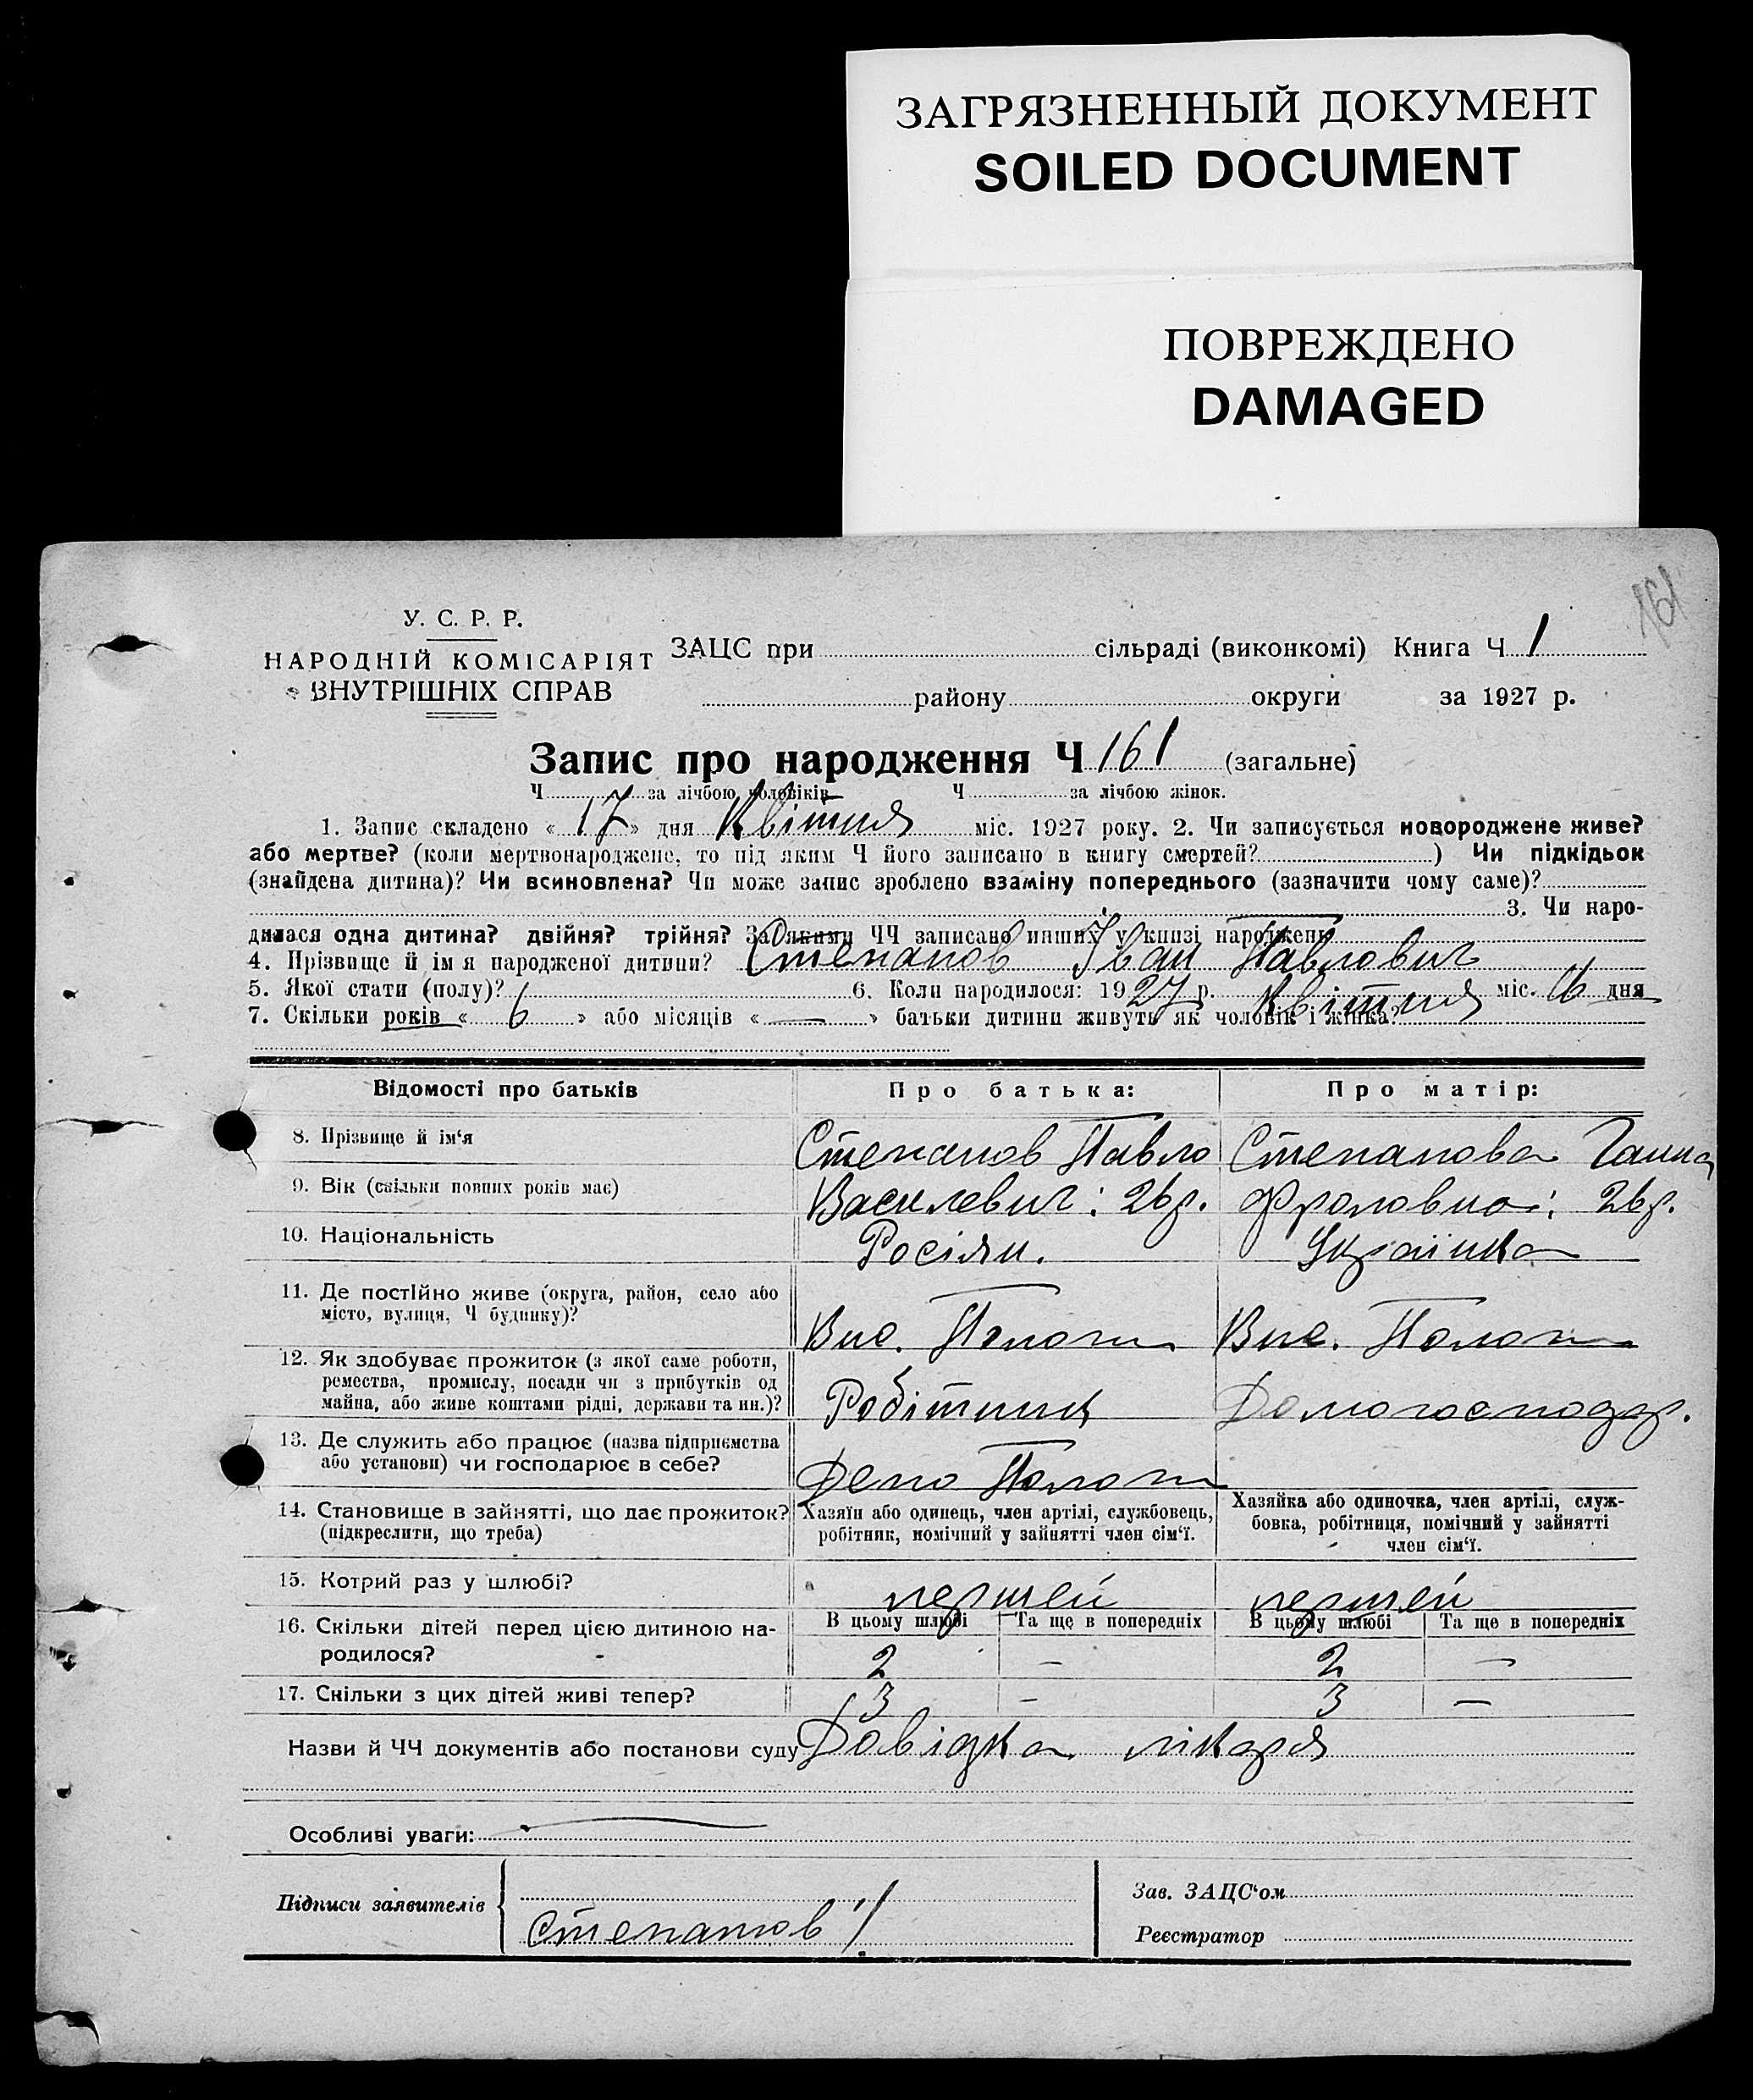 ЗАГРЯЗНЕННЫЙ ДОКУМЕНТ
SOILED DOCUMENT
ПОВРЕЖДЕНО
DAMAGED
161
У. С. Р. Р.
НАРОДНІЙ КОМІСАРІЯТ
ВНУТРІШНІХ СПРАВ
ЗАЦС при сільраді (виконкомі) Книга Ч 1
району округи за 1927 р.
Запис про народження Ч 161 (загальне)
Ч за лічбою чоловіків Ч за лічбою жінок.
1. Запис складено « 17 » дня Квітня міс. 1927 року. 2. Чи записується новороджене живе?
або мертве? (коли мертвонароджене, то під яким Ч його записано в книгу смертей? ) Чи підкідьок
(знайдена дитина)? Чи всиновлена? Чи може запис зроблено взаміну попереднього (зазначити чому саме)?
3. Чи наро-
дилася одна дитина? двійня? трійня? За якими ЧЧ записано инших у книзі народжень
4. Прізвище й ім я народженої дитини? Степанов Іван Павлович
5. Якої стати (полу)? 6. Коли народилося: 1927 р. Квітня міс. 16 дня
7. Скільки років « 6 » або місяців « — » батьки дитини живуть як чоловік і жінка?
Відомості про батьків Про батька: Про матір:
8. Прізвище й ім'я Степанов Павло Степанова Ганна
9. Вік (скільки повних років має) Василевич: 26 р. Фроловна: 26 р.
10. Національність Росіян. Українка
11. Де постійно живе (округа, район, село або
місто, вулиця, Ч будинку)? Вис. Пологи Вис. Пологи
12. Як здобуває прожиток (з якої саме роботи,
ремества, промислу, посади чи з прибутків од
майна, або живе коштами рідні, держави та ин.)? Робітник Домогосподар.
13. Де служить або працює (назва підприємства
або установи) чи господарює в себе? Депо Пологи
14. Становище в зайнятті, що дає прожиток?
(підкреслити, що треба)
Хазяїн або одинець, член артілі, службовець,
робітник, помічний у зайнятті член сім'ї.
Хазяйка або одиночка, член артілі, служ-
бовка, робітниця, помічний у зайнятті
член сім'ї.
15. Котрий раз у шлюбі? першей першей
16. Скільки дітей перед цією дитиною на-
родилося?
В цьому шлюбі Та ще в попередніх В цьому шлюбі Та ще в попередніх
2 — 2 —
17. Скільки з цих дітей живі тепер? 3 — 3 —
Назви й ЧЧ документів або постанови суду Довідка лікаря
Особливі уваги:
Підписи заявителів Степанов
Зав. ЗАЦС'ом
Реєстратор